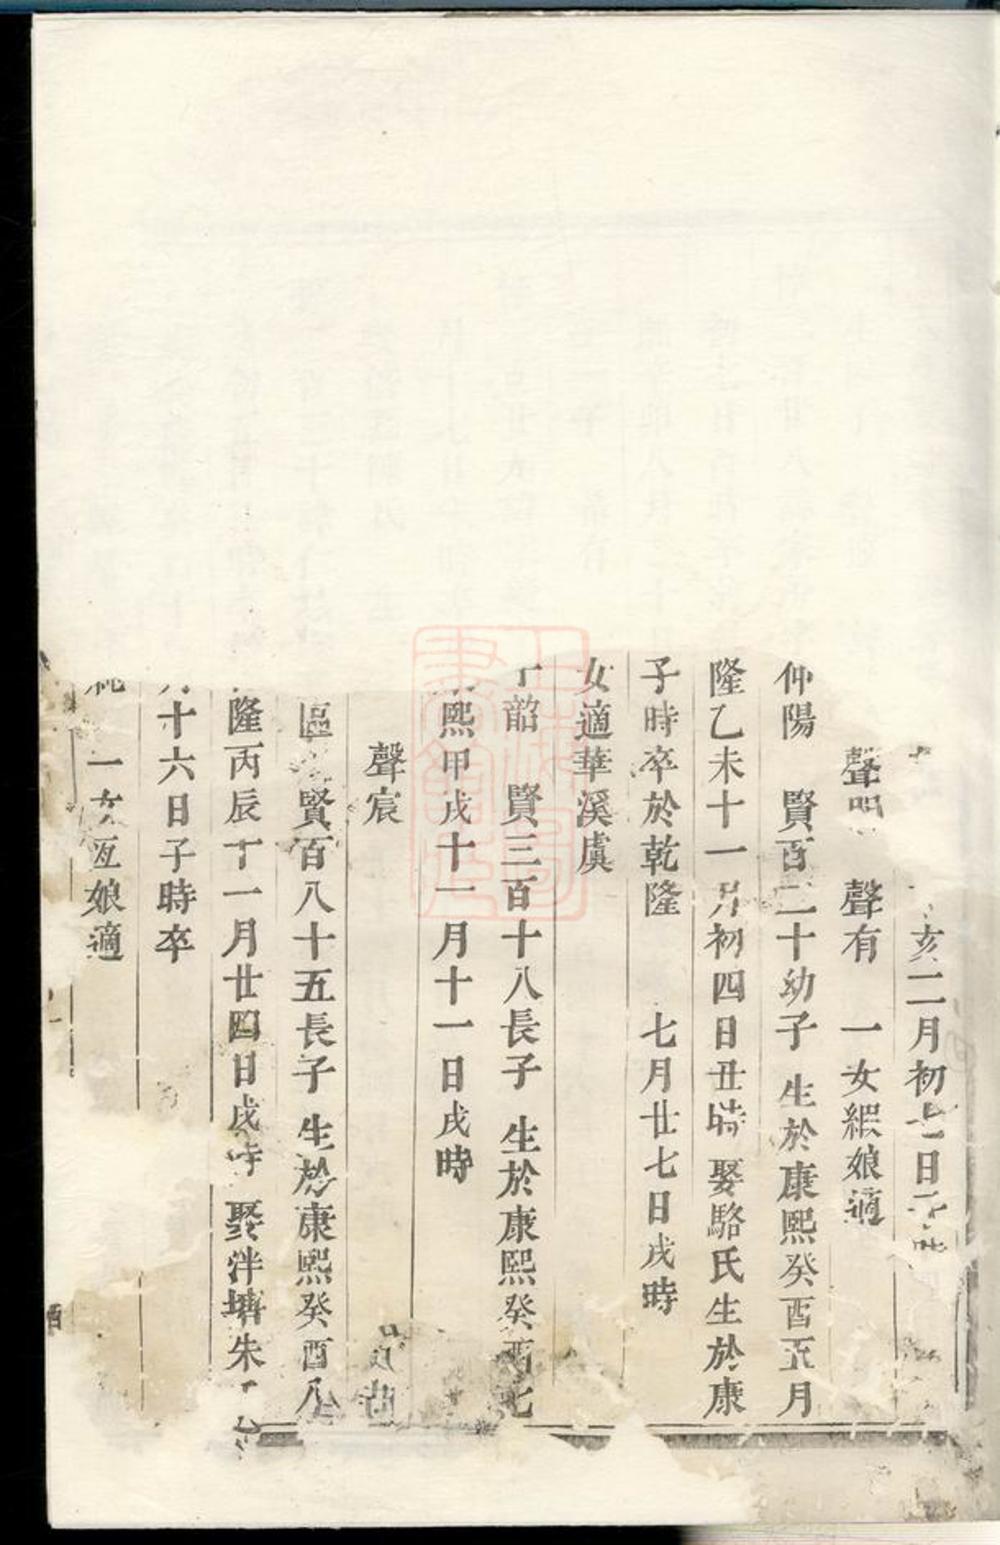 亥二月初七日
聲 聲有 一女緞娘適
仲陽 賢百二十幼子 生於康熙癸酉五月
隆乙未十一月初四日丑時 娶駱氏生於康
子時卒於乾隆 七月廿七日戌時
女適華溪虞
韶 賢三百十八長子 生於康熙癸酉七
熙甲戌十一月十一日戌時
聲宸
區 賢百八十五長子 生於康熙癸酉八
隆丙辰十一月廿四日戌時 娶泮塘朱
十六日子時卒
一女亙娘適